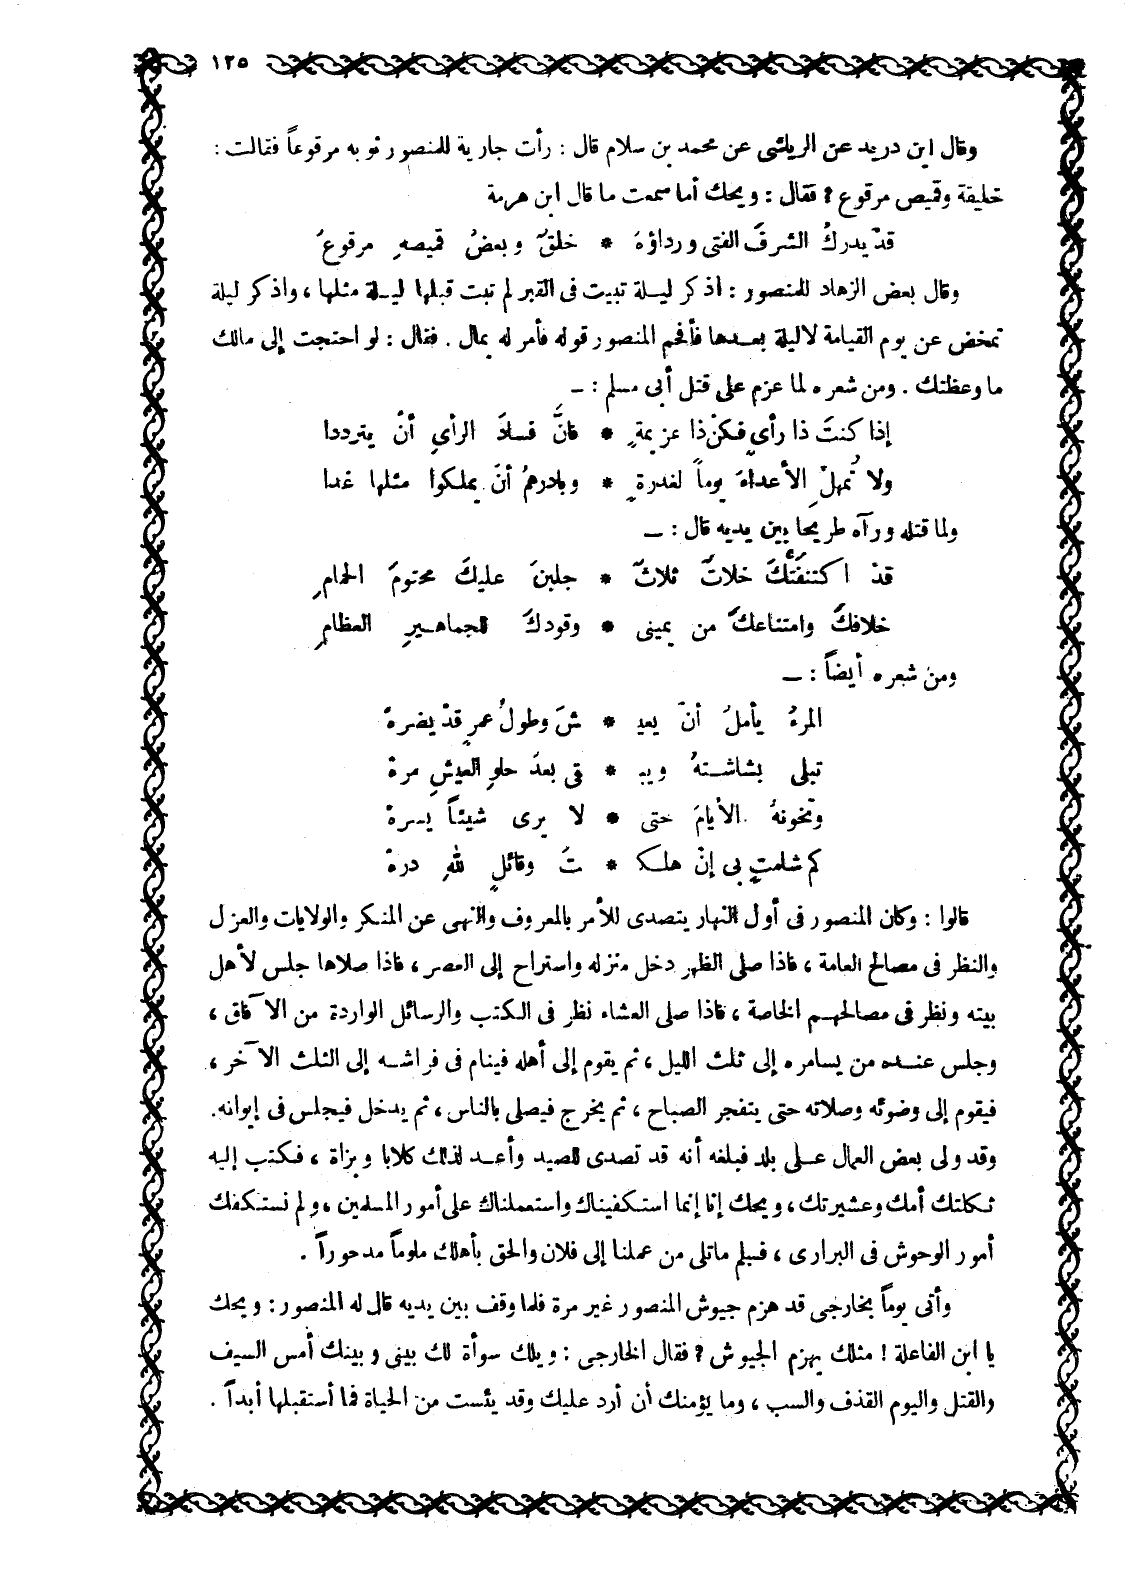 ١٢٥
وقال ابن دريد عن الرياشى عن محمد بن سلام قال : رأت جارية للمنصور ثوبه مرقوعاً فقالت :
خليفة وقميص مرقوع ؟ فقال : ويحك أما سمعت ما قال ابن هرمة
قدْ يدركُ الشرفَ الفتى ورداؤهَ * خلقٌ وبعضُ قميصهِ مرقوعُ
وقال بعض الزهاد للمنصور : اذكر ليلة تبيت فى القبر لم تبت قبلها ليلة مثلها ، واذكر ليلة
تمخض عن يوم القيامة لا ليلة بعدها فأفحم المنصور قوله فأمر له بمال . فقال : لو احتجت إلى مالك
ما وعظتك . ومن شعره لما عزم على قتل أبى مسلم : —
إذا كنتَ ذا رأيٍ فكنْ ذا عزيمةٍ * فانَّ فسادَ الرأيِ أنْ يترددا
ولا تُمهلْ الأعداءَ يوماً لغدرةٍ * وبادرهمُ أنْ يملكوا مثلها غدا
ولما قتله ورآه طريحا بين يديه قال : —
قدْ اكتنفَتْكَ خلاتٌ ثلاثٌ * جلبنَ عليكَ محتومَ الحمامِ
خلافكَ وامتناعكَ من يمينى * وقودكَ للجماهيرِ العظامِ
ومن شعره أيضاً : —
المرءُ يأملُ أنْ يعيـ * شَ وطولُ عمرٍ قدْ يضرهْ
تبلى بشاشتهُ ويبـ * قى بعدَ حلوِ العيشِ مرهْ
وتخونهُ الأيامَ حتى * لا يرى شيئاً يسرهْ
كم شامتٍ بى إنْ هلكـ * تُ وقائلٍ للهِ درهْ
قالوا : وكان المنصور فى أول النهار يتصدى للأمر بالمعروف والنهى عن المنكر والولايات والعزل
والنظر فى مصالح العامة ، فاذا صلى الظهر دخل منزله واستراح إلى العصر ، فاذا صلاها جلس لأهل
بيته ونظر فى مصالحهم الخاصة ، فاذا صلى العشاء نظر فى الكتب والرسائل الواردة من الآفاق ،
وجلس عنده من يسامره إلى ثلث الليل ، ثم يقوم إلى أهله فينام فى فراشه إلى الثلث الآخر ،
فيقوم إلى وضوئه وصلاته حتى يتفجر الصباح ، ثم يخرج فيصلى بالناس ، ثم يدخل فيجلس فى إيوانه.
وقد ولى بعض العمال على بلد فبلغه أنه قد تصدى للصيد وأعد لذلك كلابا وبزاة ، فكتب إليه
ثكلتك أمك وعشيرتك ، ويحك إنا إنما استكفيناك واستعملناك على أمور المسلمين ، ولم نستكفك
أمور الوحوش فى البرارى ، فسلم ما تلى من عملنا إلى فلان والحق بأهلك ملوماً مدحوراً .
وأتى يوماً بخارجى قد هزم جيوش المنصور غير مرة فلما وقف بين يديه قال له المنصور : ويحك
يا ابن الفاعلة ! مثلك يهزم الجيوش ؟ فقال الخارجى : ويلك سوأة لك بينى وبينك أمس السيف
والقتل واليوم القذف والسب ، وما يؤمنك أن أرد عليك وقد يئست من الحياة فما أستقبلها أبداً .